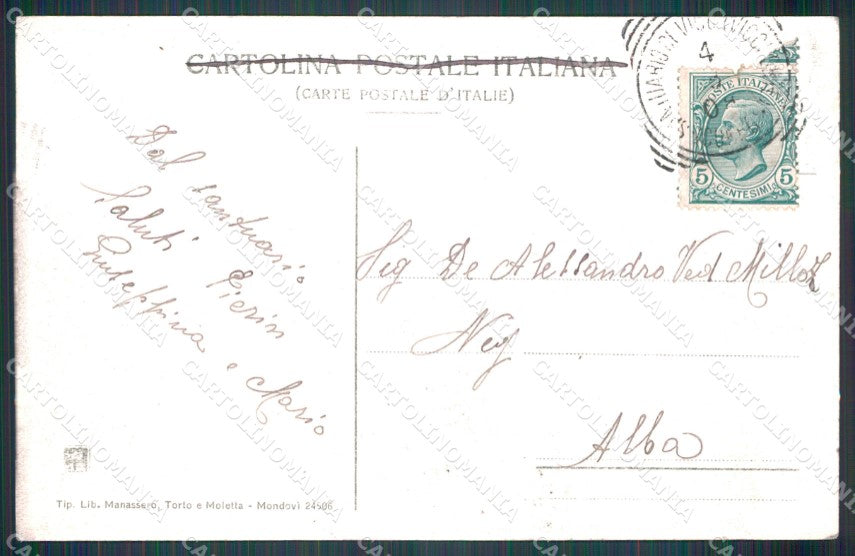 CARTOLINA POSTALE ITALIANA
(CARTE POSTALE D'ITALIE)
4
POSTE ITALIANE
5 CENTESIMI 5
Dal santuario
Saluti Pierin
Giuseppina e Mario
Sig De Alessandro Ved Milloz
Neg
Alba
Tip. Lib. Manassero, Torto e Moletta - Mondovì 24506
CARTOLINOMANIA